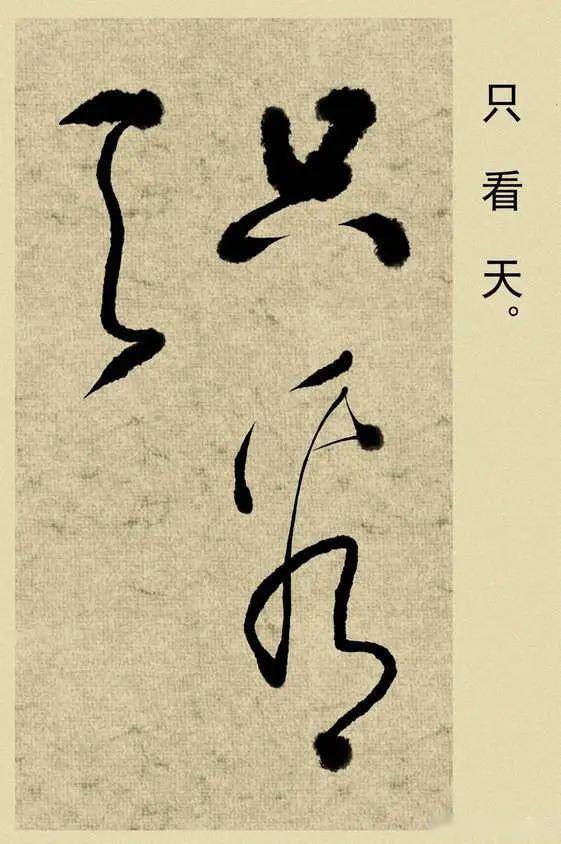 只看天。
只看
天